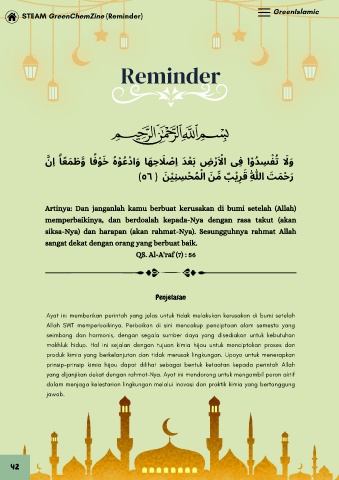 STEAM GreenChemZine (Reminder)
GreenIslamic
Reminder
بِسْمِ اللَّهِ الرَّحْمَٰنِ الرَّحِيمِ
وَلَا تُفْسِدُوْا فِى الْاَرْضِ بَعْدَ اِصْلَاحِهَا وَادْعُوْهُ خَوْفًا وَّطَمَعًاۗ اِنَّ
رَحْمَتَ اللّٰهِ قَرِيْبٌ مِّنَ الْمُحْسِنِيْنَ ( ٥٦ )
Artinya: Dan janganlah kamu berbuat kerusakan di bumi setelah (Allah)
memperbaikinya, dan berdoalah kepada-Nya dengan rasa takut (akan
siksa-Nya) dan harapan (akan rahmat-Nya). Sesungguhnya rahmat Allah
sangat dekat dengan orang yang berbuat baik.
QS. Al-A'raf (7) : 56
Penjelasan
Ayat ini memberikan perintah yang jelas untuk tidak melakukan kerusakan di bumi setelah
Allah SWT memperbaikinya. Perbaikan di sini mencakup penciptaan alam semesta yang
seimbang dan harmonis, dengan segala sumber daya yang disediakan untuk kebutuhan
makhluk hidup. Hal ini sejalan dengan tujuan kimia hijau untuk menciptakan proses dan
produk kimia yang berkelanjutan dan tidak merusak lingkungan. Upaya untuk menerapkan
prinsip-prinsip kimia hijau dapat dilihat sebagai bentuk ketaatan kepada perintah Allah
yang dijanjikan dekat dengan rahmat-Nya. Ayat ini mendorong untuk mengambil peran aktif
dalam menjaga kelestarian lingkungan melalui inovasi dan praktik kimia yang bertanggung
jawab.
42